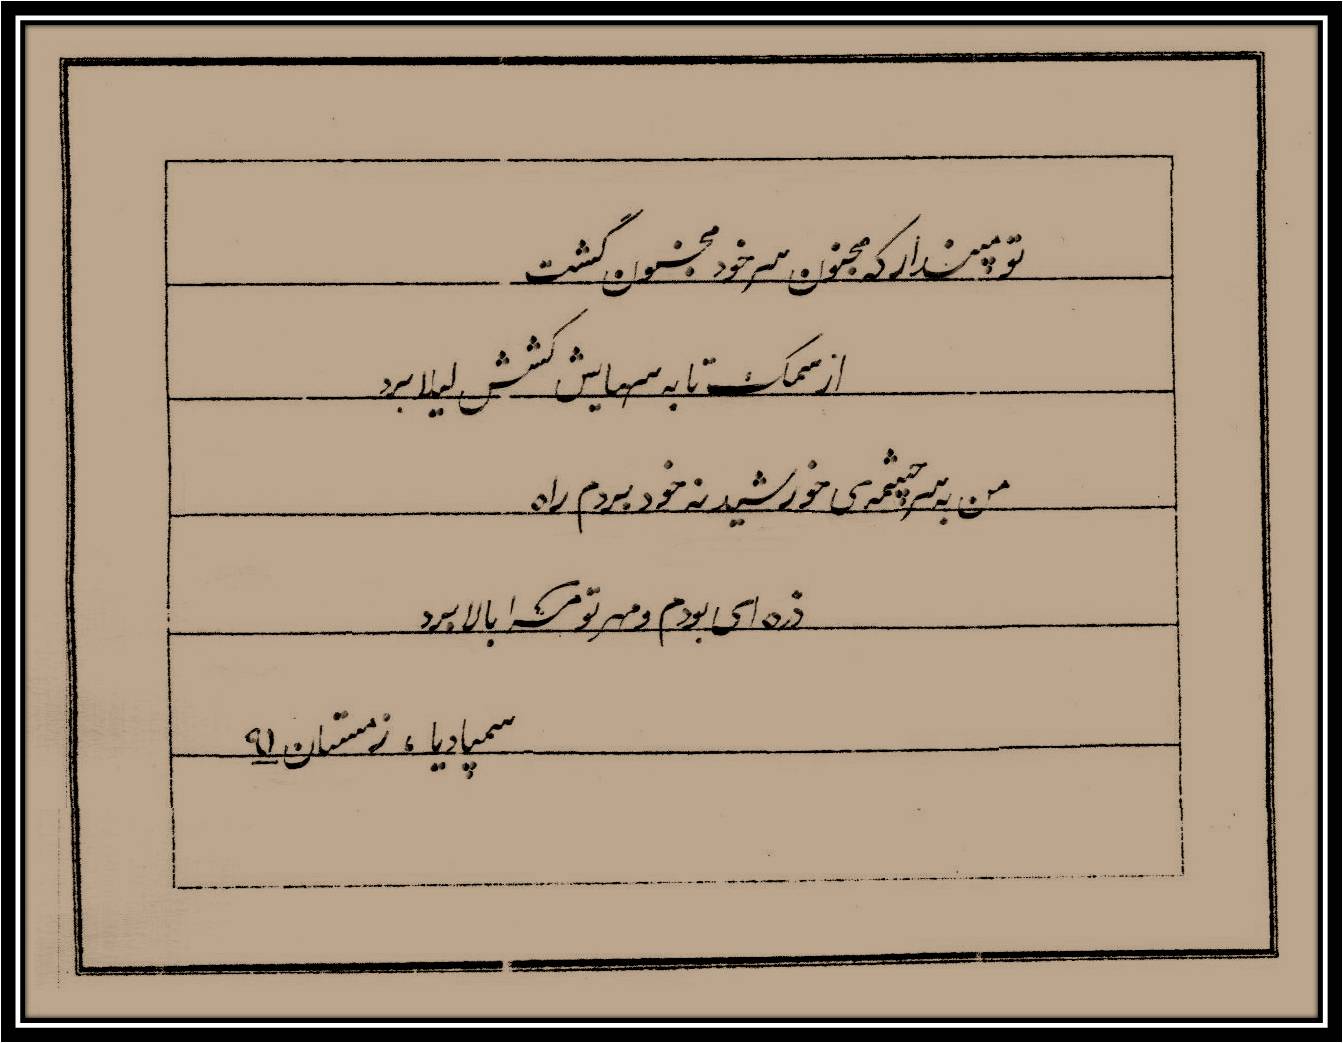 تو مپندار که مجنون سر خود مجنون گشت
از سمک تا به سهایش کشش لیلا برد
من به سرچشمه‌ی خورشید نه خود بردم راه
ذره ای بودم و مهر تو مرا بالا برد
سمپادیا ، زمستان ۹۱